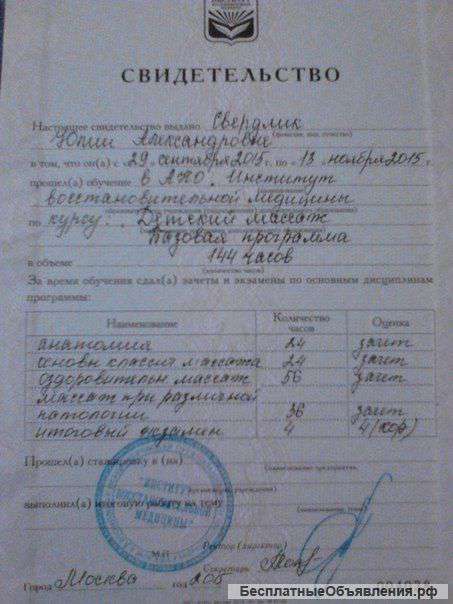 ИНСТИТУТ
СВИДЕТЕЛЬСТВО
Настоящее свидетельство выдано Свердлик
Юлии Александровна
(фамилия, имя, отчество)
в том, что он(а) с 29 сентября 2015 г. по 13 ноября 2015 г.
прошел(а) обучение в АНО. Институт
восстановительной медицины
по курсу. Детский массаж
Базовая программа
в объеме 144 часов
(количество часов)
За время обучения сдал(а) зачеты и экзамены по основным дисциплинам
программы:
Наименование Количество часов Оценка
анатомия 24 зачет
основы классич массажа 24 зачет
оздоровительн массаж 56 зачет
массаж при различной
патологии 36 зачет
итоговый экзамен 4 4 (хор)
Прошел(а) стажировку в (на)
(наименование предприятия,
организации, учреждения)
выполнил(а) итоговую работу на тему
"ИНСТИТУТ
ВОССТАНОВИТЕЛЬНОЙ
МЕДИЦИНЫ"
М.П.
Ректор (директор)
Секретарь
Город Москва год 2015
БесплатныеОбъявления.рф